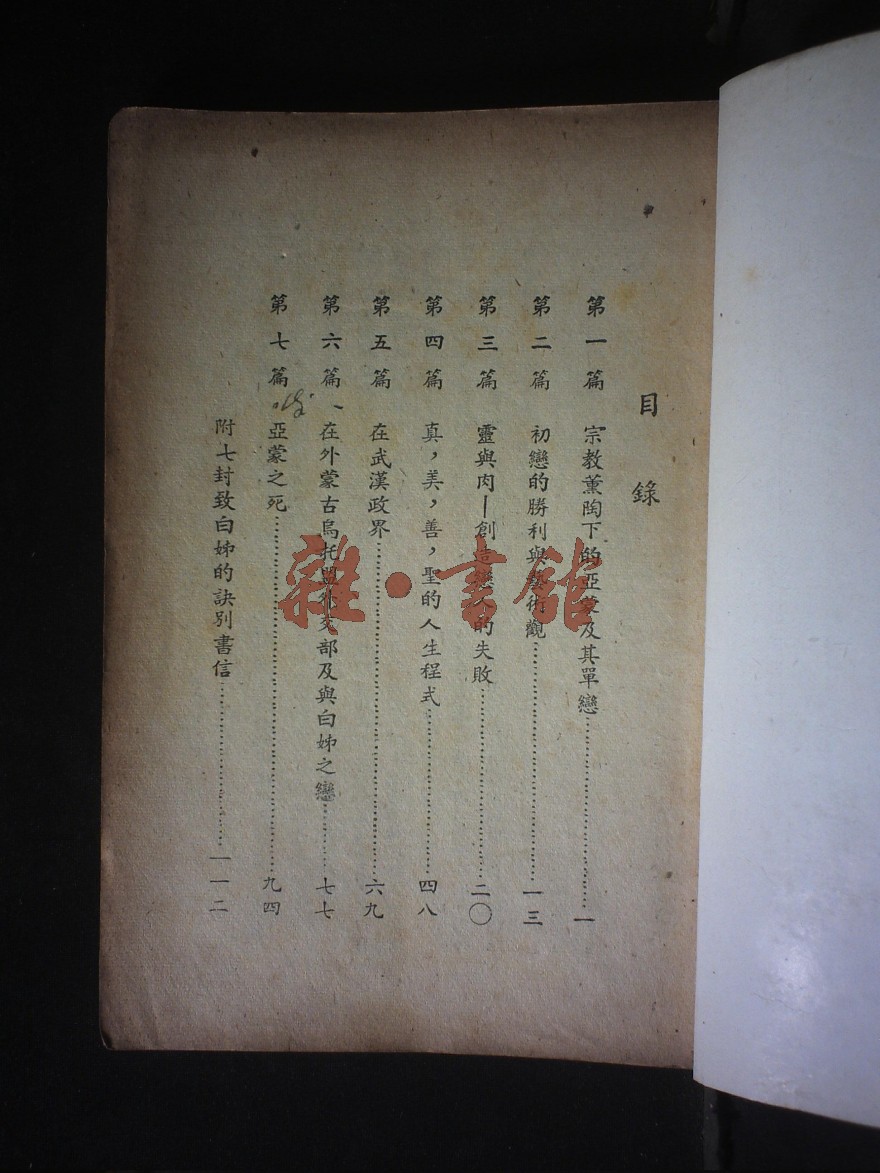 目錄
第一篇 宗教薰陶下的亞蒙及其單戀……一
第二篇 初戀的勝利與藝術觀……一三
第三篇 靈與肉—創造戀人的失敗……二〇
第四篇 真,美,善,聖的人生程式……四八
第五篇 在武漢政界……六九
第六篇、在外蒙古烏托盟外交部及與白姊之戀……七七
第七篇 亞蒙之死……九四
附七封致白姊的訣別書信……一一二
雜·書館